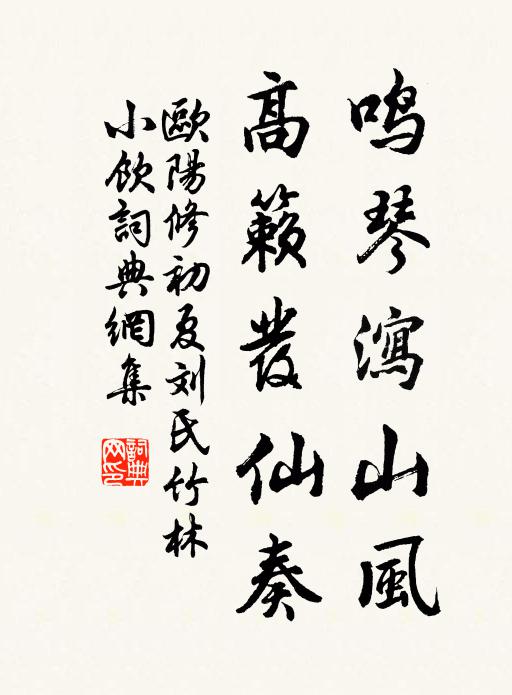 鸣琴瀉山風
高籟發仙奏
歐陽修初夏刘氏竹林
小飲詞典網集
詞典网印